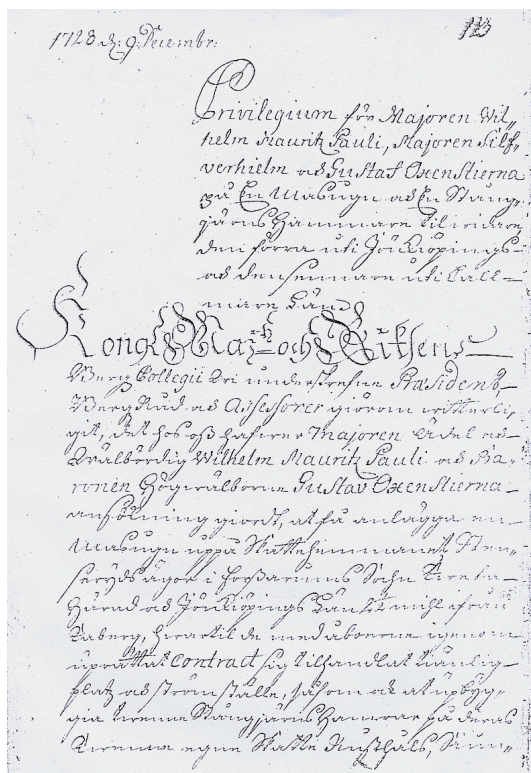 1728 d: 9 Decembr:
113
Privilegium för Majoren Wil-
helm Mauritz Pauli, Majoren Silf-
verhielm och Gustaf Oxenstierna
på En Masugn och En Stång-
järns Hammare
den förra uti Jönkiöpings-
och den sennare uti Call-
mare Länd
Kongl: Maj:tz och Riksens
Berg Collegii Wri underskrefne Præsident,
BergRåd och Assessorer giörom witterli-
git, det hos oss hafwer Majoren Ädel och
Wälbördig Wilhelm Mauritz Pauli och Ba-
ronen Högwälborne Gustav Oxenstierna
ansökning giordt, at få anlägga en
Masugn uppå Skattehemmanet Sten-
seryds ägor i Forssarums Sochn
Härad och Jönkiöpings Län mihl ifrån
Taberg, hwartil de med åboerne igenom
uprättat Contract sig tilhandlat tiänlig
platz och strömställe, såsom ock at upbyg-
gia twenne Stångjärns Hamrar på deras
twenne egne Skatte